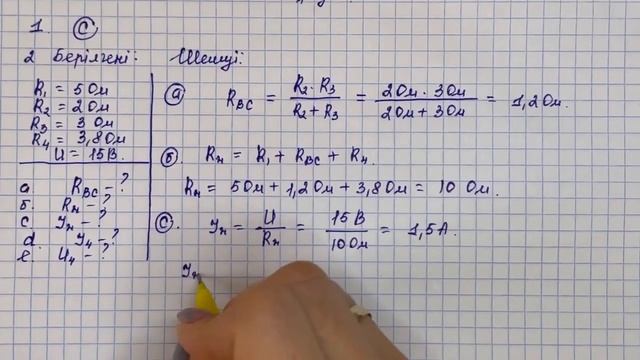 1. C
2 Берілгені: Шешуі:
R₁ = 5 Ом
R₂ = 2 Ом
R₃ = 3 Ом
R₄ = 3,8 Ом
U = 15 В.
a R_BC – ?
б. Rж – ?
c Iж – ?
d. I₄ – ?
e. U₄ – ?
a R_BC = R₂ · R₃ / R₂ + R₃ = 2 Ом · 3 Ом / 2 Ом + 3 Ом = 1,2 Ом.
б. Rж = R₁ + R_BC + R₄.
Rж = 5 Ом + 1,2 Ом + 3,8 Ом = 10 Ом.
c. Iж = U / Rж = 15 В / 10 Ом = 1,5 А.
Iж